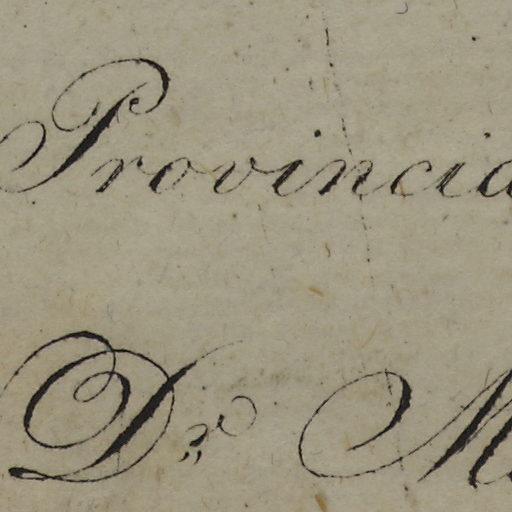 Provincia
Dr. M